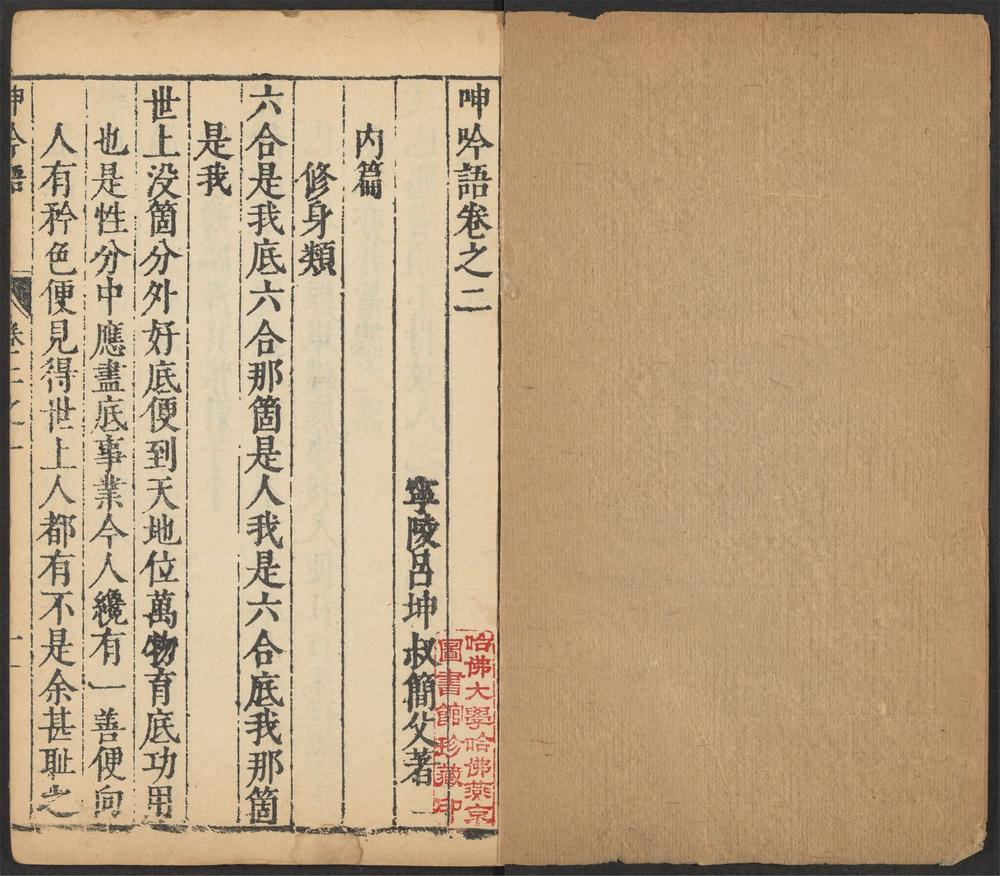 呻吟語卷之二
寧陵呂坤叔簡父著
内篇
修身類
六合是我底六合那箇是人我是六合底我那箇
是我
世上没箇分外好底便到天地位萬物育底功用
也是性分中應盡底事業今人纔有一善便向
人有矜色便見得世上人都有不是余甚耻之
呻吟語
卷二之一
一
哈佛大學哈佛燕京
圖書館珍藏印